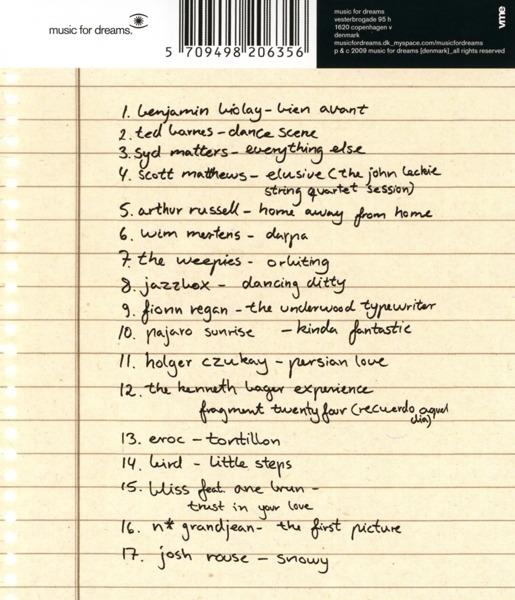 music for dreams.
5 709498 206356
music for dreams
vesterbrogade 95 h
1620 copenhagen v
denmark
musicfordreams.dk_myspace.com/musicfordreams
p & c 2009 music for dreams [denmark]_all rights reserved
vme
1. benjamin biolay - bien avant
2. ted barnes - dance scene
3. syd matters - everything else
4. scott matthews - elusive (the john leckie
string quartet session)
5. arthur russell - home away from home
6. wim mertens - darpa
7. the weepies - orbiting
8. jazzbox - dancing ditty
9. fionn regan - the underwood typewriter
10. pajaro sunrise - kinda fantastic
11. holger czukay - persian love
12. the kenneth bager experience
fragment twenty four (recuerdo aquel
dia)
13. eroc - tontillon
14. bird - little steps
15. bliss feat. ane brun -
trust in your love
16. n* grandjean - the first picture
17. josh rouse - snowy